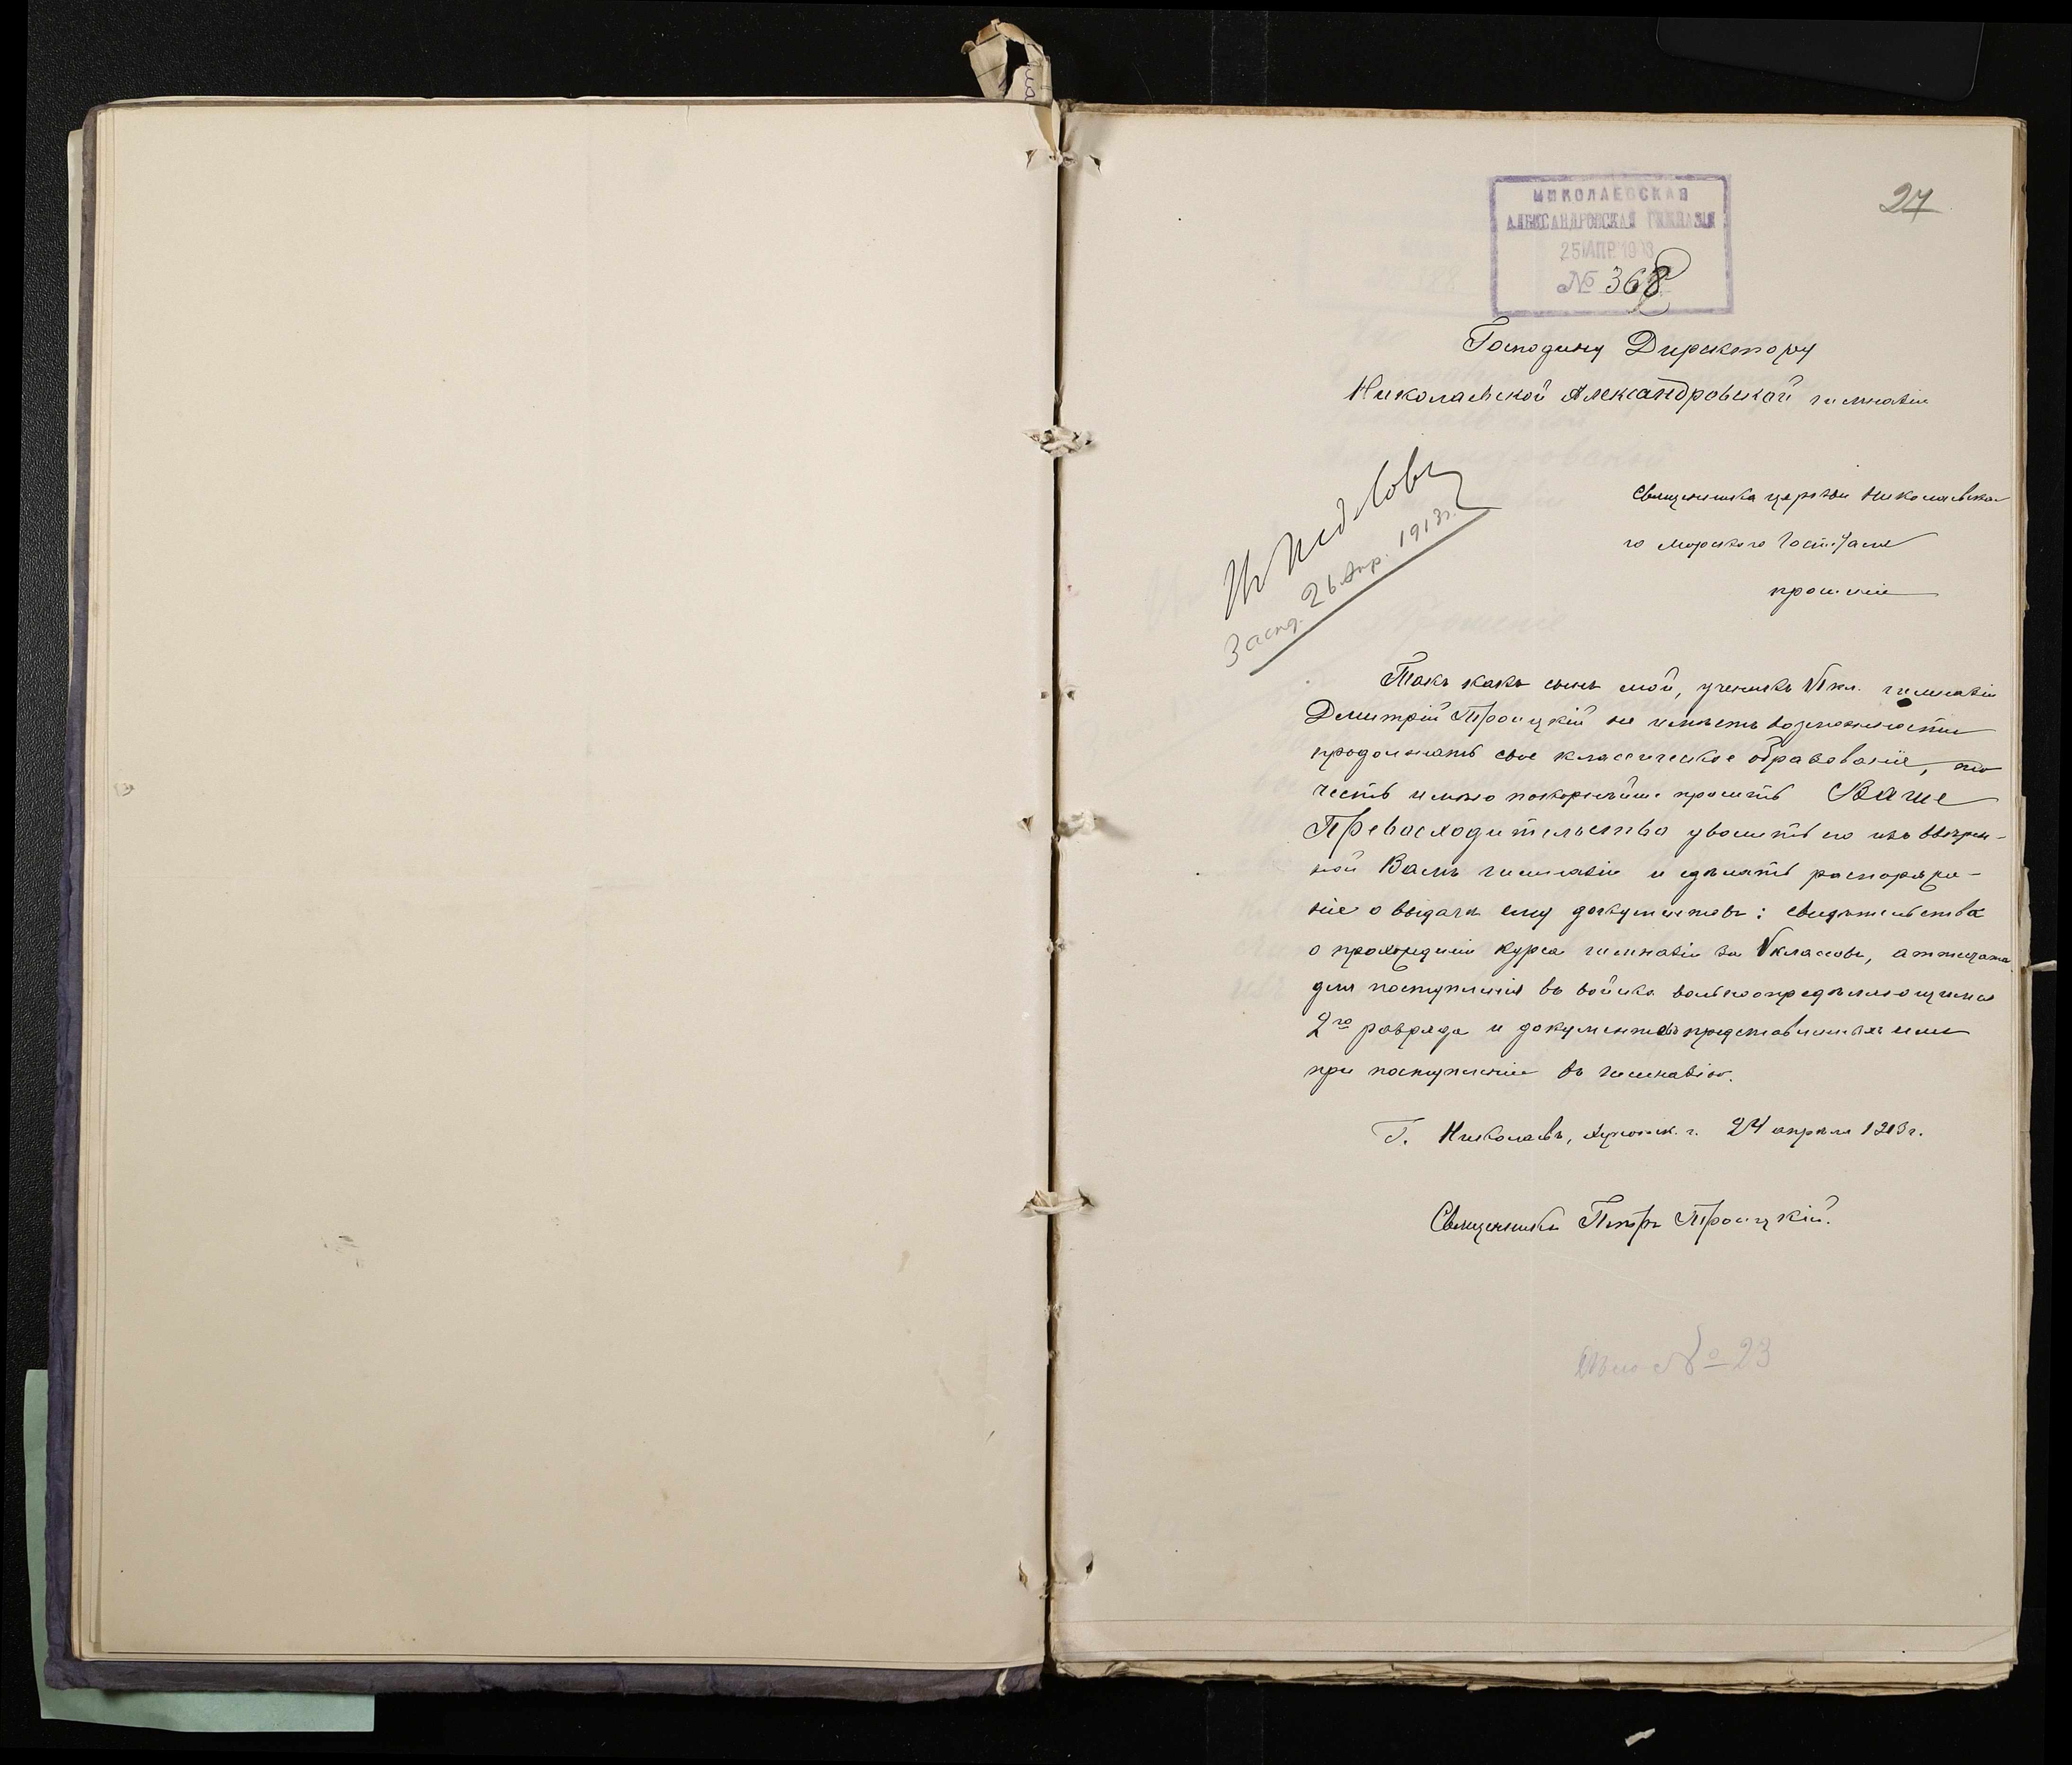 27
НИКОЛАЕВСКАЯ
АЛЕКСАНДРОВСКАЯ ГИМНАЗІЯ
25 АПР 1913
№ 368
Господину Директору
Николаевской Александровской гимназіи
Священника церкви Николаевска-
го Морского Госпиталя
прошеніе
Въ Пед. Совѣ
Засѣд. 26 Апр. 1913 г.
Такъ какъ сынъ мой, ученикъ VI кл. гимназіи
Дмитрій Троицкій не имѣетъ возможности
продолжать свое классическое образованіе, то
честь имѣю покорнѣйше просить Ваше
Превосходительство уволить его изъ ввѣрен-
ной Вамъ гимназіи и сдѣлать распоряже-
ніе о выдачѣ ему документовъ: свидѣтельства
о прохожденіи курса гимназіи за V классовъ, аттестата
для поступленія въ войска вольноопредѣляющимся
2го разряда и документовъ представленныхъ имъ
при поступленіи въ гимназію.
Г. Николаевъ, Херсонск. г. 24 апрѣля 1913 г.
Священникъ Петръ Троицкій.
Дѣло № 23